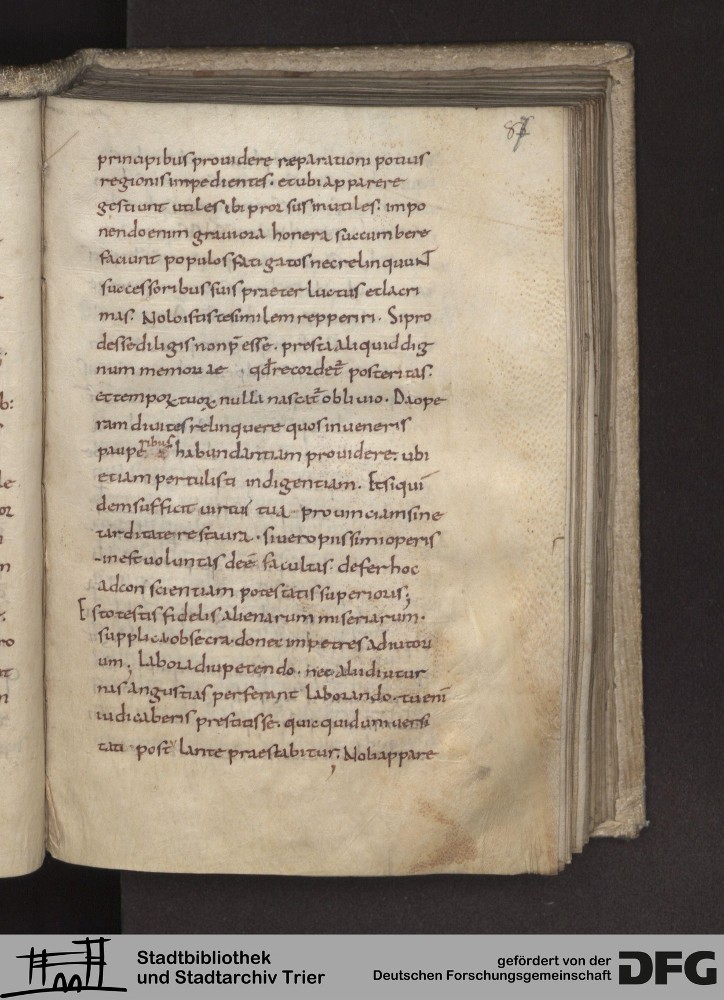 87
principibus prouidere reparationi potius
regionis inpedientes. et ubi apparere
gestiunt utiles ibi prorsus inutiles. impo
nendo enim grauiora honera succumbere
faciunt populos fatigatos nec relinquunt
successoribus suis praeter luctus et lacri
mas. Nolo istis te similem repperiri. Si pro
desse diligis non p̄esse. presta aliquid dig
num memoriae qđ recordet᷒ posteritas.
et tempoꝝ tuoꝝ nulla nascat᷒ obliuio. Da ope
ram diuites relinquere quos inueneris
pauperibus habundantiam prouidere. ubi
etiam pertulisti indigentiam. Et si qui
dem sufficit uirtus tua prouinciam sine
tarditate restaura. si uero piissimi operis
inest uoluntas deē facultas. defer hoc
ad conscientiam potestatis superioris;
Esto testis fidelis alienarum miseriarum.
supplica obsecra. donec impetres adiutori
um; labora diu petendo. nec aliud iutur
nas angustias perferant laborando. tu enī
iudicaberis prestitisse. quicquid uniuersi
tati postulante praestabitur; Noli appare
Stadtbibliothek
und Stadtarchiv Trier
gefördert von der
Deutschen Forschungsgemeinschaft
DFG